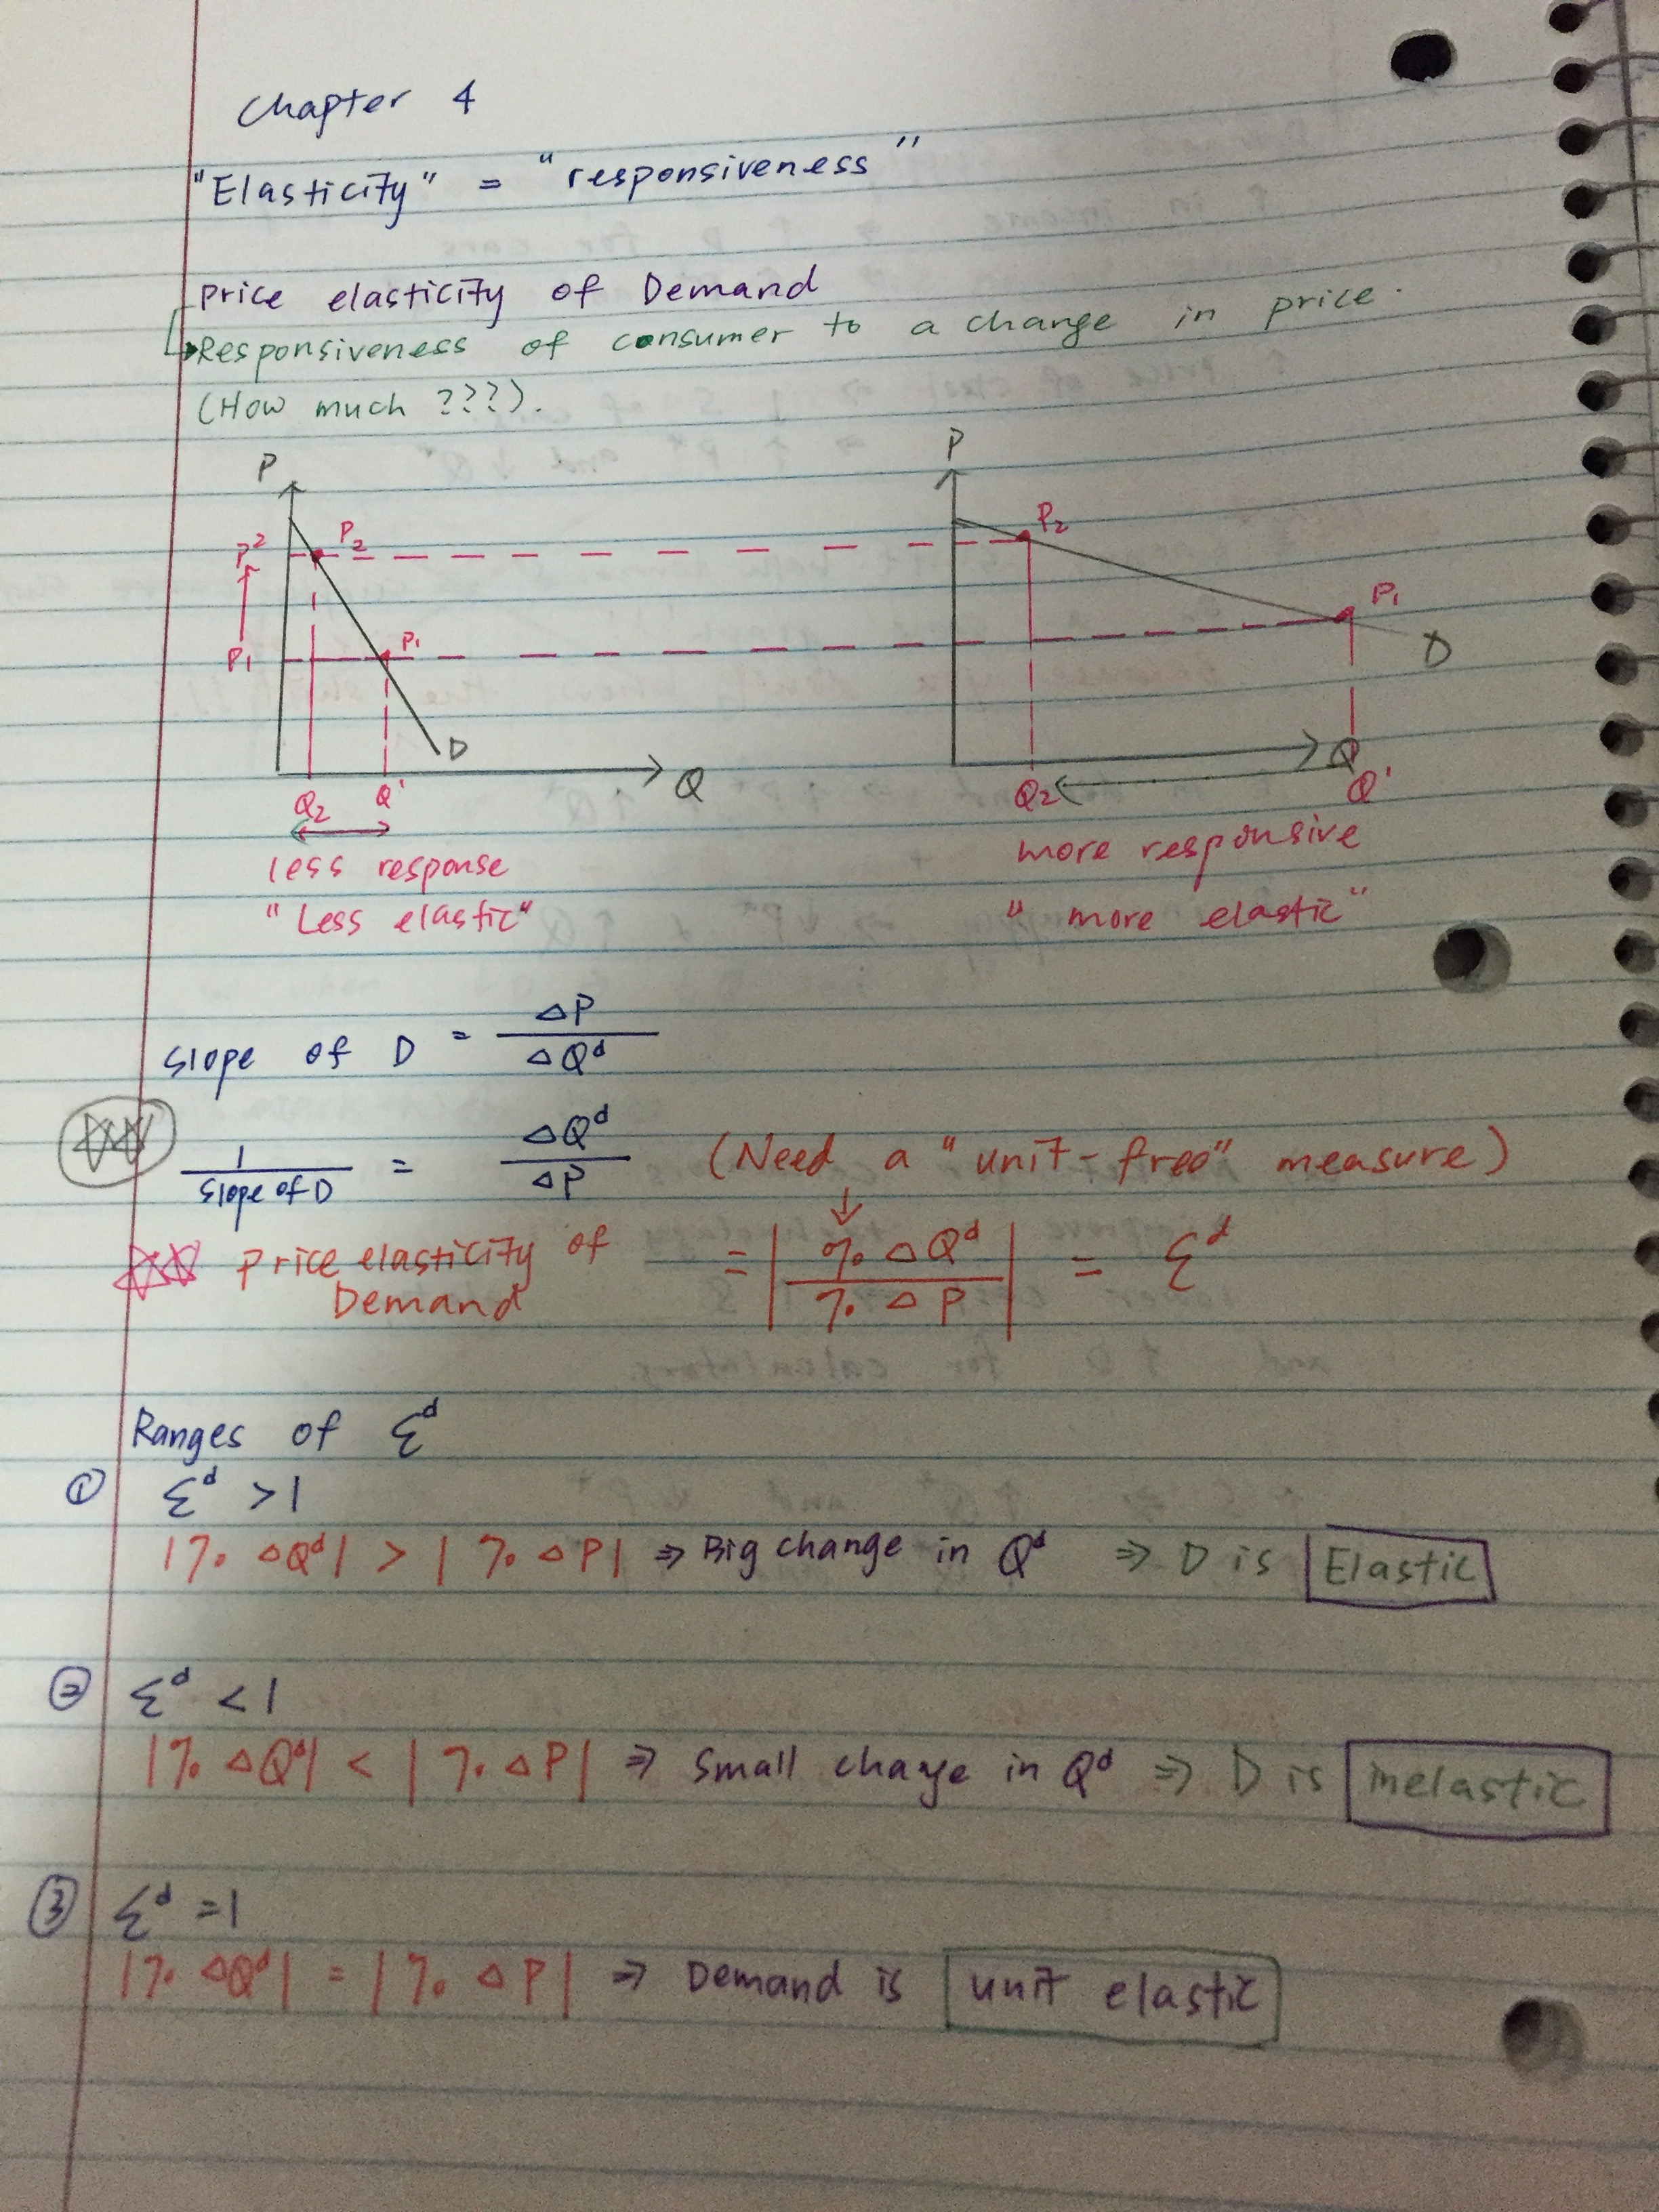 Chapter 4
"Elasticity" = "responsiveness"
Price elasticity of Demand
Responsiveness of consumer to a change in price.
(How much ???).
P
P
P²
P₂
P₂
P₁
P₁
P₁
D
D
Q
Q
Q₂
Q'
Q₂
Q'
less response
more responsive
"Less elastic"
"more elastic"
Slope of D = ΔP / ΔQᵈ
1 / Slope of D = ΔQᵈ / ΔP (Need a "unit-free" measure)
Price elasticity of Demand = | % ΔQᵈ / % ΔP | = Ɛᵈ
Ranges of Ɛᵈ
① Ɛᵈ > 1
|% ΔQᵈ| > |% ΔP| ⇒ Big change in Qᵈ ⇒ D is Elastic
② Ɛᵈ < 1
|% ΔQᵈ| < |% ΔP| ⇒ Small change in Qᵈ ⇒ D is inelastic
③ Ɛᵈ = 1
|% ΔQᵈ| = |% ΔP| ⇒ Demand is unit elastic